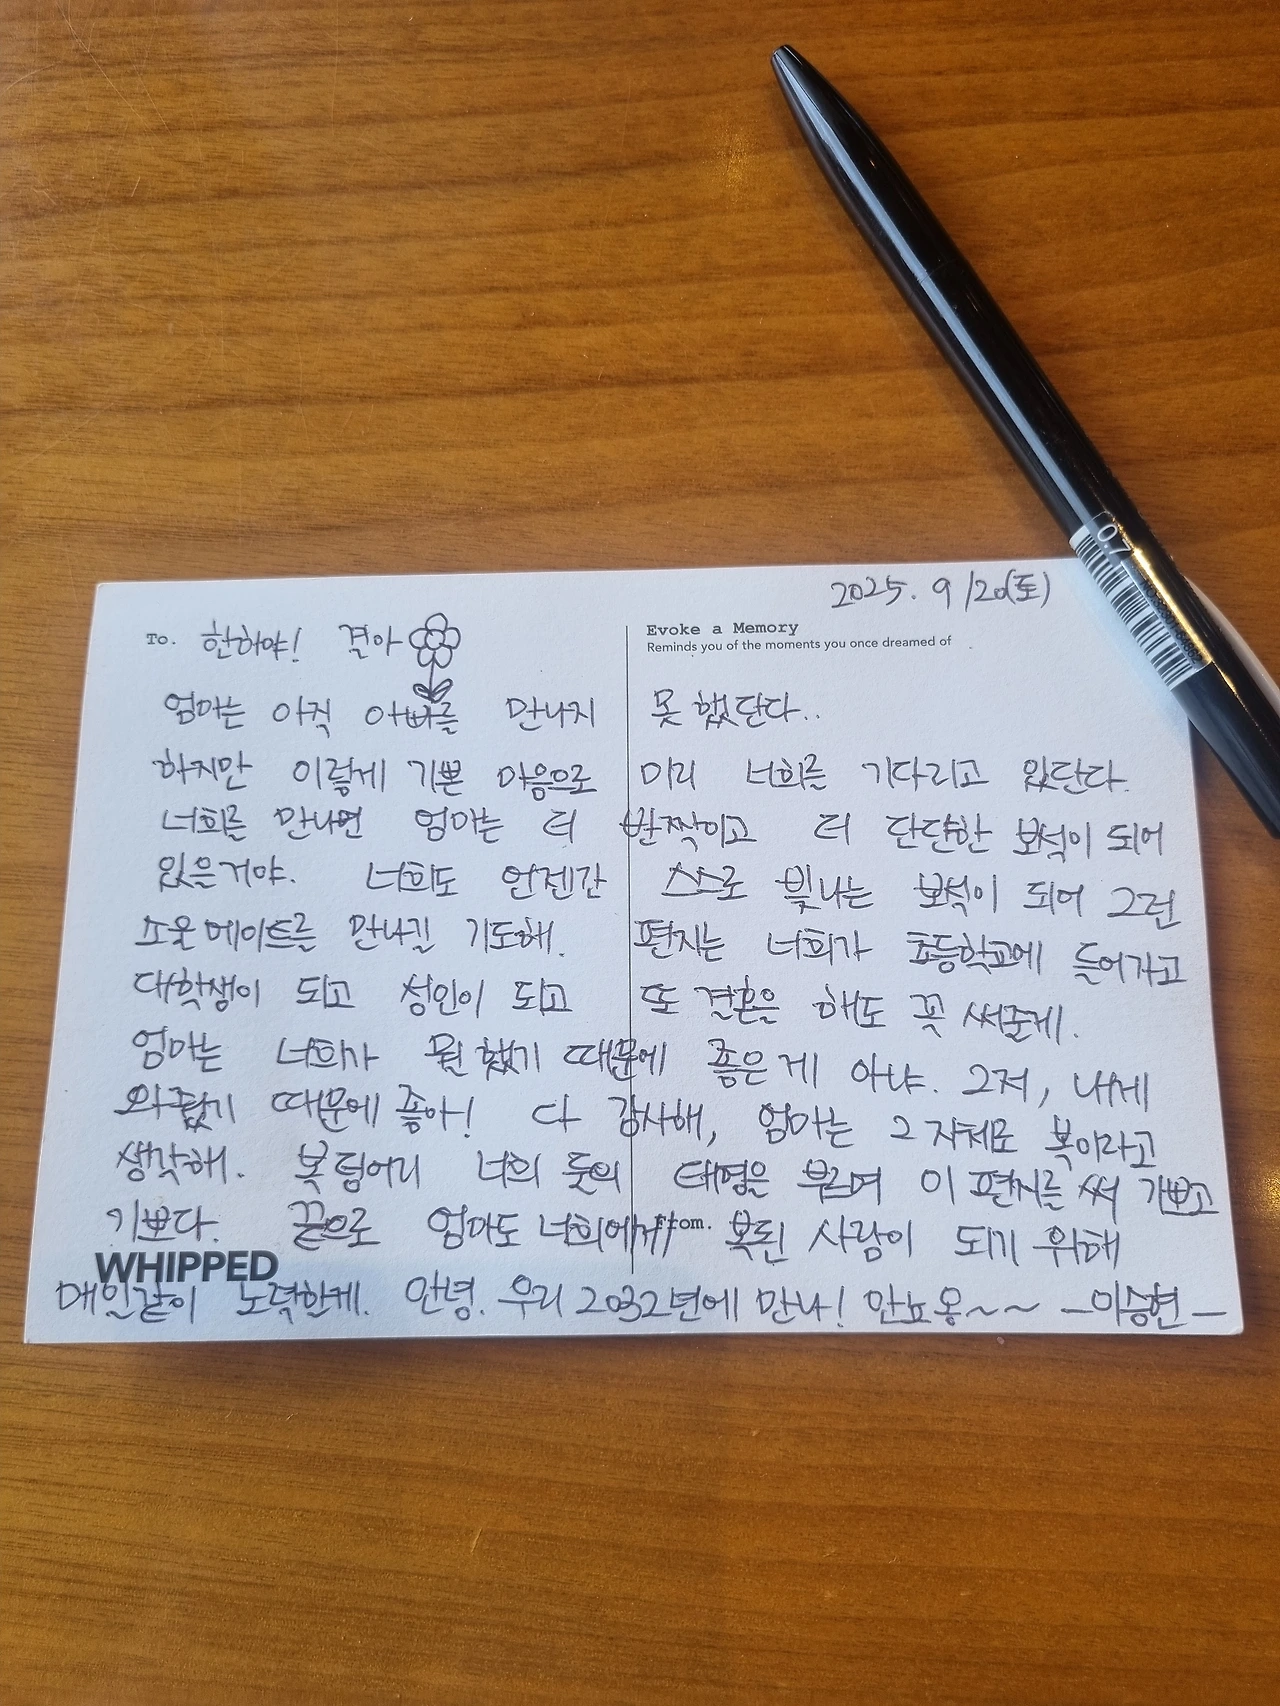 2025. 9/20(토)
To. 한하야! 결아
Evoke a Memory
Reminds you of the moments you once dreamed of
엄마는 아직 아빠를 만나지 못 했단다..
하지만 이렇게 기쁜 마음으로 미리 너희를 기다리고 있단다.
너희를 만나면 엄마는 더 반짝이고 더 단단한 보석이 되어
있을거야. 너희도 언젠간 스스로 빛나는 보석이 되어 그런
소울메이트를 만나길 기도해. 편지는 너희가 초등학교에 들어가고
대학생이 되고 성인이 되고 또 결혼을 해도 꼭 써줄게.
엄마는 너희가 뭘 했기 때문에 좋은게 아냐. 그저, 내게
와줬기 때문에 좋아! 다 감사해, 엄마는 그 자체로 복이라고
생각해. 복덩어리 너희 둘의 태명을 부르며 이 편지를 써 기쁘고
기쁘다. 끝으로 엄마도 너희에게 복된 사람이 되기 위해
From.
WHIPPED
매일같이 노력한게. 안녕. 우리 2032년에 만나! 안뇨옹~~ -이승현-
0.7